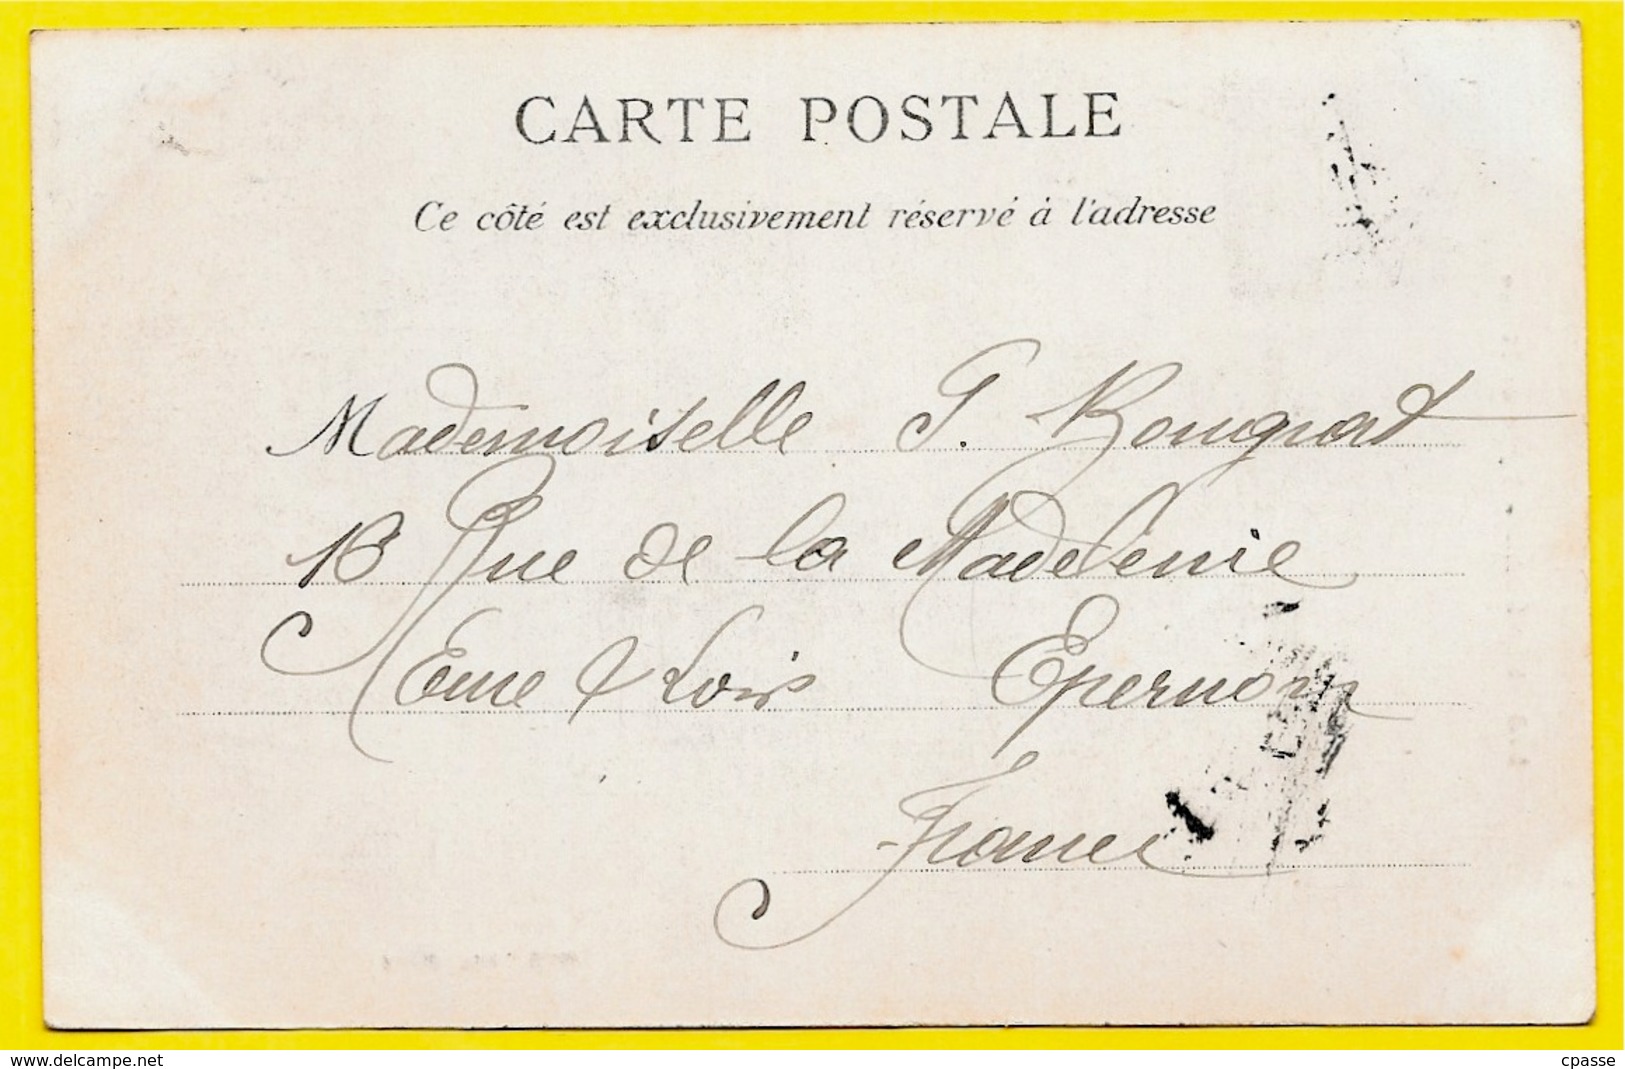 CARTE POSTALE
Ce côté est exclusivement réservé à l'adresse
Mademoiselle P. Rougnat
13 Rue de la Madelenie
Eure & Loir Epernon
France
www.delcampe.net cpasse